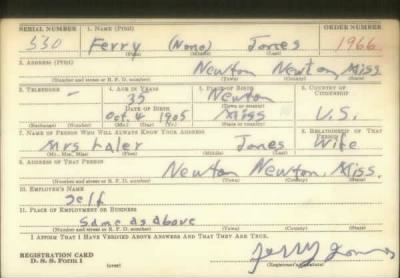 SERIAL NUMBER 1. NAME (Print) ORDER NUMBER
330 Ferry (None) Jones 1966
(First) (Middle) (Last)
2. ADDRESS (Print)
Newton Newton Miss.
(Number and street or R. F. D. number) (Town) (County) (State)
3. TELEPHONE 4. AGE IN YEARS 5. PLACE OF BIRTH 6. COUNTRY OF CITIZENSHIP
- 35 Newton
DATE OF BIRTH (Town or county)
Oct. 4 1905 Miss U.S.
(Exchange) (Number) (Mo.) (Day) (Yr.) (State or country)
7. NAME OF PERSON WHO WILL ALWAYS KNOW YOUR ADDRESS 8. RELATIONSHIP OF THAT PERSON
Mrs Laler Jones Wife
(Mr., Mrs., Miss) (First) (Middle) (Last)
9. ADDRESS OF THAT PERSON
Newton Newton, Miss.
(Number and street or R. F. D. number) (Town) (County) (State)
10. EMPLOYER'S NAME
Self
11. PLACE OF EMPLOYMENT OR BUSINESS
Same as above
(Number and street or R. F. D. number) (Town) (County) (State)
I AFFIRM THAT I HAVE VERIFIED ABOVE ANSWERS AND THAT THEY ARE TRUE.
REGISTRATION CARD
D. S. S. Form 1 (over) (Registrant's signature)
Jones